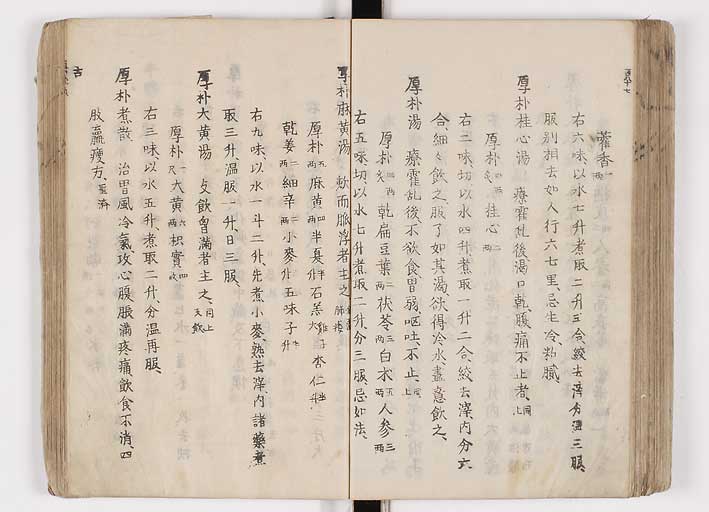 藿香一両
右六味以水七升煮取二升三合、絞去滓分温三服、
服別相去如人行六七里、忌生冷粘膩、
厚朴桂心湯　療霍乱後渇口乾腹痛不止者、同上
厚朴四両炙　桂心二両
右二味切以水四升煮取一升二合、絞去滓内分六
合、細々飲之、服了如其渇、欲得冷水尽意飲之、
厚朴湯　療霍乱後、不欲食胃弱、嘔吐不止、同上
厚朴四両炙　乾扁豆葉二両　茯苓三両　白朮五両　人参三両
右五味切、以水七升煮取二升、分三服、忌如法、
厚朴麻黄湯　欬而脈浮者主之
厚朴五両　麻黄四両　半夏半升　石羔雞子大　杏仁半升
乾姜二両　細辛二両　小麥一升　五味子半升
右九味、以水一斗二升、先煮小麥、熟去滓、内諸藥煮
取三升、温服一升、日三服、
厚朴大黄湯　支飲胷滿者主之、同上
厚朴一両　大黄六両　枳實四枚
右三味、以水五升、煮取二升、分温再服、
厚朴煮散　治胃風冷氣攻心腹脹滿疼痛飲食不消、四
肢羸瘦方、聖濟